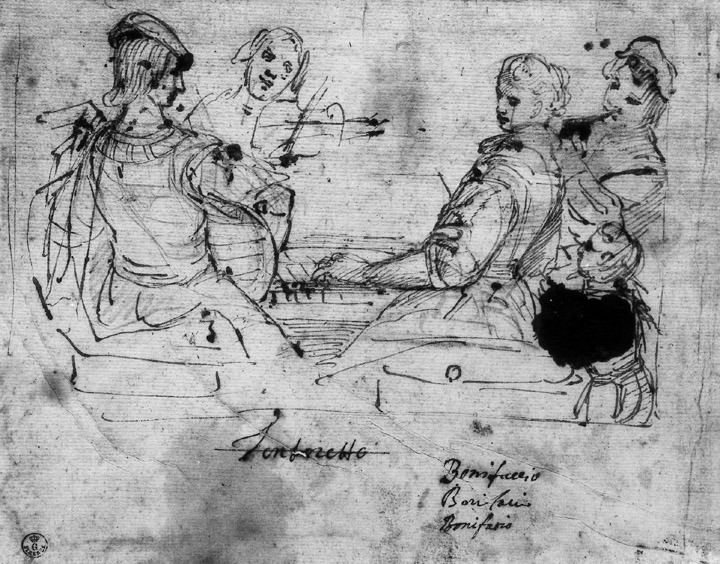 Tentoretto
Bonifaccio
Bonifacio
Bonifasio